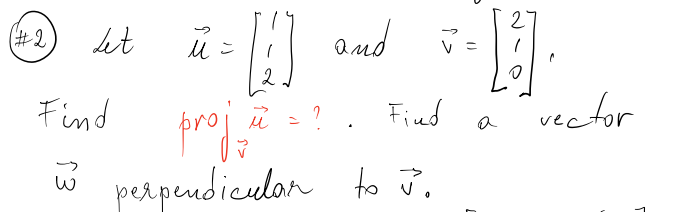 #2 Let u⃗ = [1 1 2] and v⃗ = [2 1 0].
Find proj_v⃗ u⃗ = ? . Find a vector
w⃗ perpendicular to v⃗.